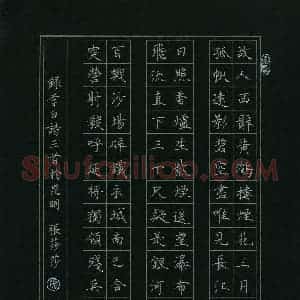 故人西辭黃鶴樓煙花三月
孤帆遠影碧空盡唯見長江
日照香爐生紫煙遙望瀑布
飛流直下三千尺疑是銀河
百戰沙場碎鐵衣城南已合
突營射殺呼延將獨領殘兵
錄李白詩三首於昆明 張莎莎
Shufaziliao.com